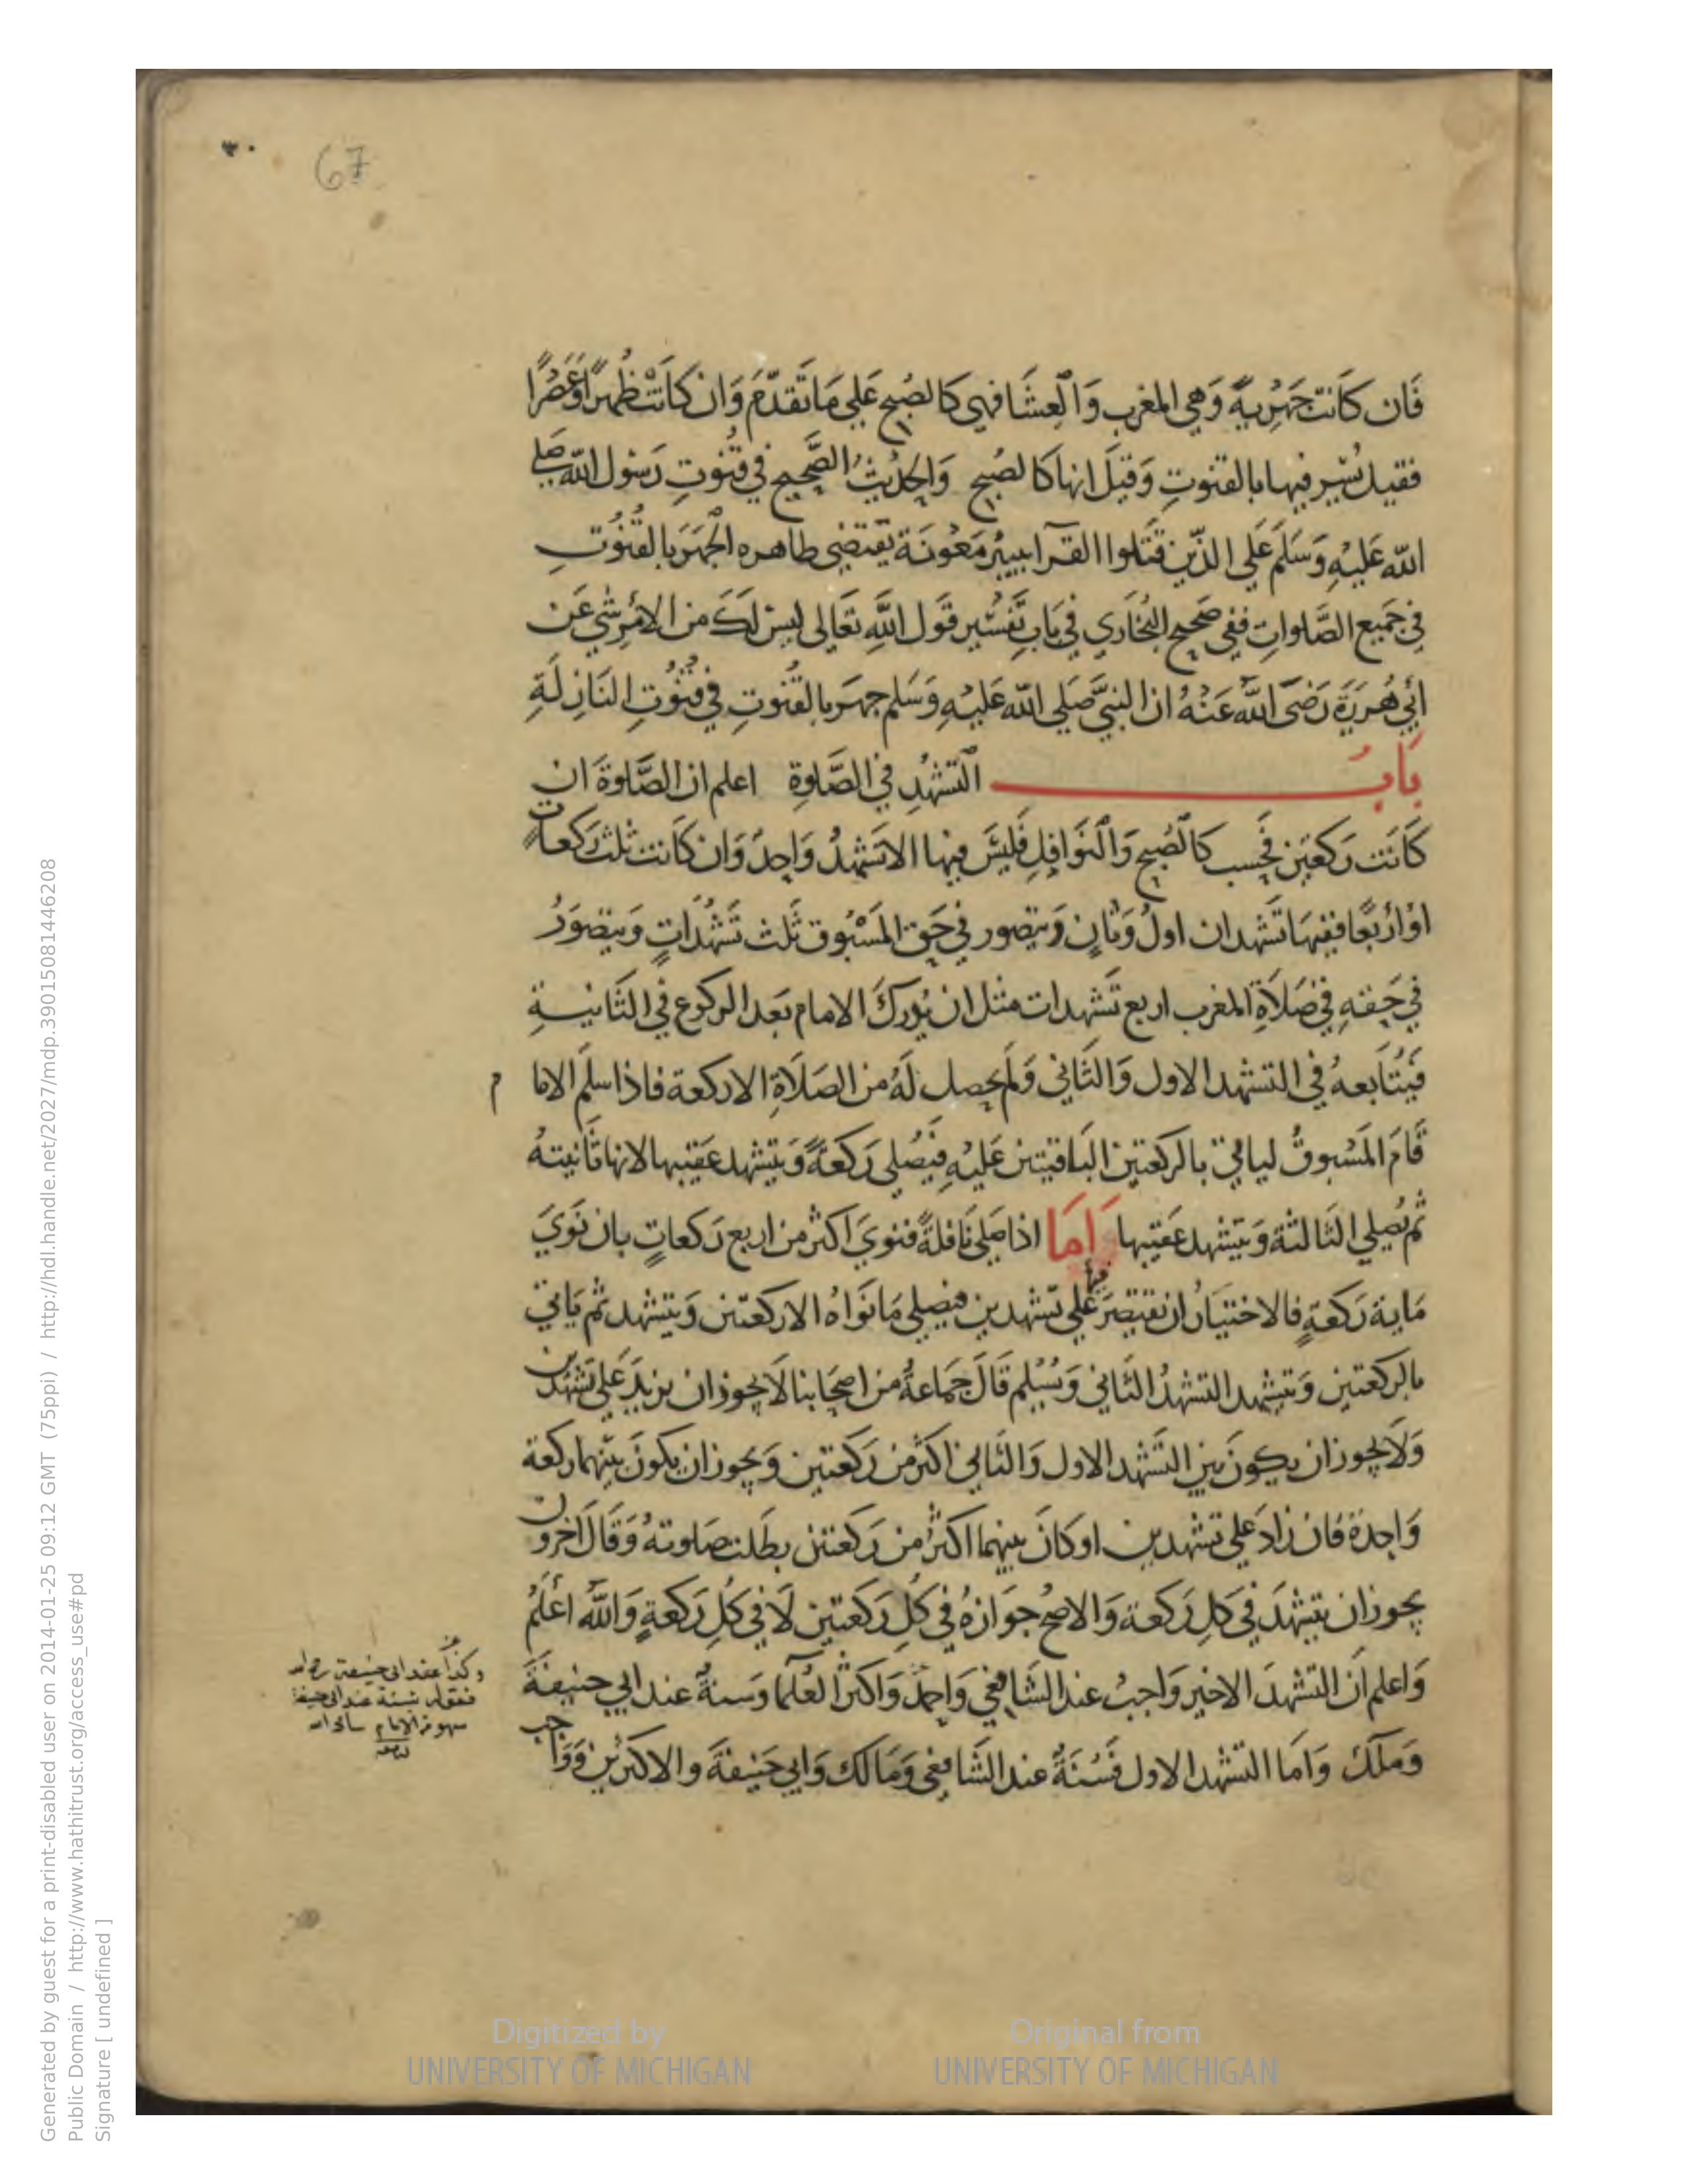 ٣٠
67
فَان كَانَت جَهْرِيةً وَهي المغرب وَالعِشَا فهي كَالصُبح عَلي مَا تَقدّمَ وَان كَانَتْ ظُهرًا اَوْ عَصْرًا
فقيل يُسّر فيها بالقنوتِ وَقيلَ انها كالصُبح وَالحديثُ الصَّحيح في قنُوتِ رَسُول اللّه صَلي
اللّه عَليْهِ وَسَلم عَلي الذّين قَتَلوا القرآ ببيْر مَعُونَة يَقتضِي ظاهره الجَهرَ بالقُنُوتِ
في جَميع الصَّلواتِ ففي صَحيح البُخاري في بَابِ تَفسْير قَول اللَّهِ تعَالى ليسَ لَكَ من الامْر شي عَن
أبي هُريرَةَ رَضيَ اللّهُ عَنْهُ ان النبيَّ صَلي اللّه عَليْهِ وَسَلم جهرَ بالقُنوتِ في قنُوتِ النَازِلَةِ
بَابُ التشهُدِ في الصَّلوةِ اعلم ان الصَّلوةَ ان
كَانَت رَكعتَين فَحسب كالصُبح وَالنَوافِلِ فَليسَ فيها الا تشهُدٌ وَاحِدٌ وَان كَانت ثلث رَكعاتٍ
اوْ أرْبعًا ففيهَا تَشهدان اولٌ وَثانٍ وَيتصور في حَق المَسْبُوق ثَلث تَشَهُّدَاتٍ وَيتصَوَرُ
في حَقهِ في صَلاةِ المغرب اربع تَشهدات مثل ان يُدركَ الامام بَعد الركوع في الثَانيةِ
فيُتَابعهُ في التشهد الاول وَالثَاني وَلم يحصل لَهُ من الصَلاةِ الا ركعة فاذا سلم الامام
قَامَ المَسْبوقُ ليأتيَ بالركعتين البَاقيتين عَليْهِ فيُصَلي رَكعَةً وَيتشهد عَقيبها لانها ثَانيتهُ
ثم يُصلي الثَالثةَ وَيتشهد عَقيبها اَمَا اذا صَلي نَافلةً فنوَيَ اكثر من اربع رَكعاتٍ بان نَوَيَ
مَاية رَكعةٍ فالاختيَارُ ان يقتصرَ فيها عَلي تشهدين فيصلي مَا نَوَاهُ الا ركعتين وَيتشهد ثم يَاتي
بالركعتين وَيتشهد التشهدُ الثَاني وَيُسَلم قَالَ جَمَاعةٌ من اصحَابنا لَا يجوز ان يزيدَ عَلي تشهدين
وَلَا يجوز ان يكونَ بَين التَشهد الاول وَالثَاني اكثَر من رَكعتين وَيجوز ان يكونَ بينهما ركعة
وَاحِدَة فان زادَ عَلي تشهدين او كانَ بينهما اكثرُ من رَكعتين بطَلت صَلوتهُ وَقَالَ اخرون
يجوز ان يتشهدَ في كلِ رَكعة وَالاصحُ جوَازهُ في كُلِ رَكعتين لَا في كُلِ رَكعةٍ وَاللّه اعْلَمُ
وَاعلم اَن التشهدَ الاخير وَاجبٌ عند الشَافعي وَاحمد وَاكثر العُلمآ وَسنةٌ عند ابي حنيفَةَ
وَملكٍ وَامَا التشهد الاول فَسُنَةٌ عند الشَافعي وَمَالك وَابي حَنيفَةَ والاكثرين وَوَاجب
وكذا عند ابي حنيفة رح الله
فقوله سنة عند ابي حنيفة
سهو من الامام سامحه الله
Generated by guest for a print-disabled user on 2014-01-25 09:12 GMT (75ppi) / http://hdl.handle.net/2027/mdp.39015081446208
Public Domain / http://www.hathitrust.org/access_use#pd
Signature [ undefined ]
Digitized by
UNIVERSITY OF MICHIGAN
Original from
UNIVERSITY OF MICHIGAN